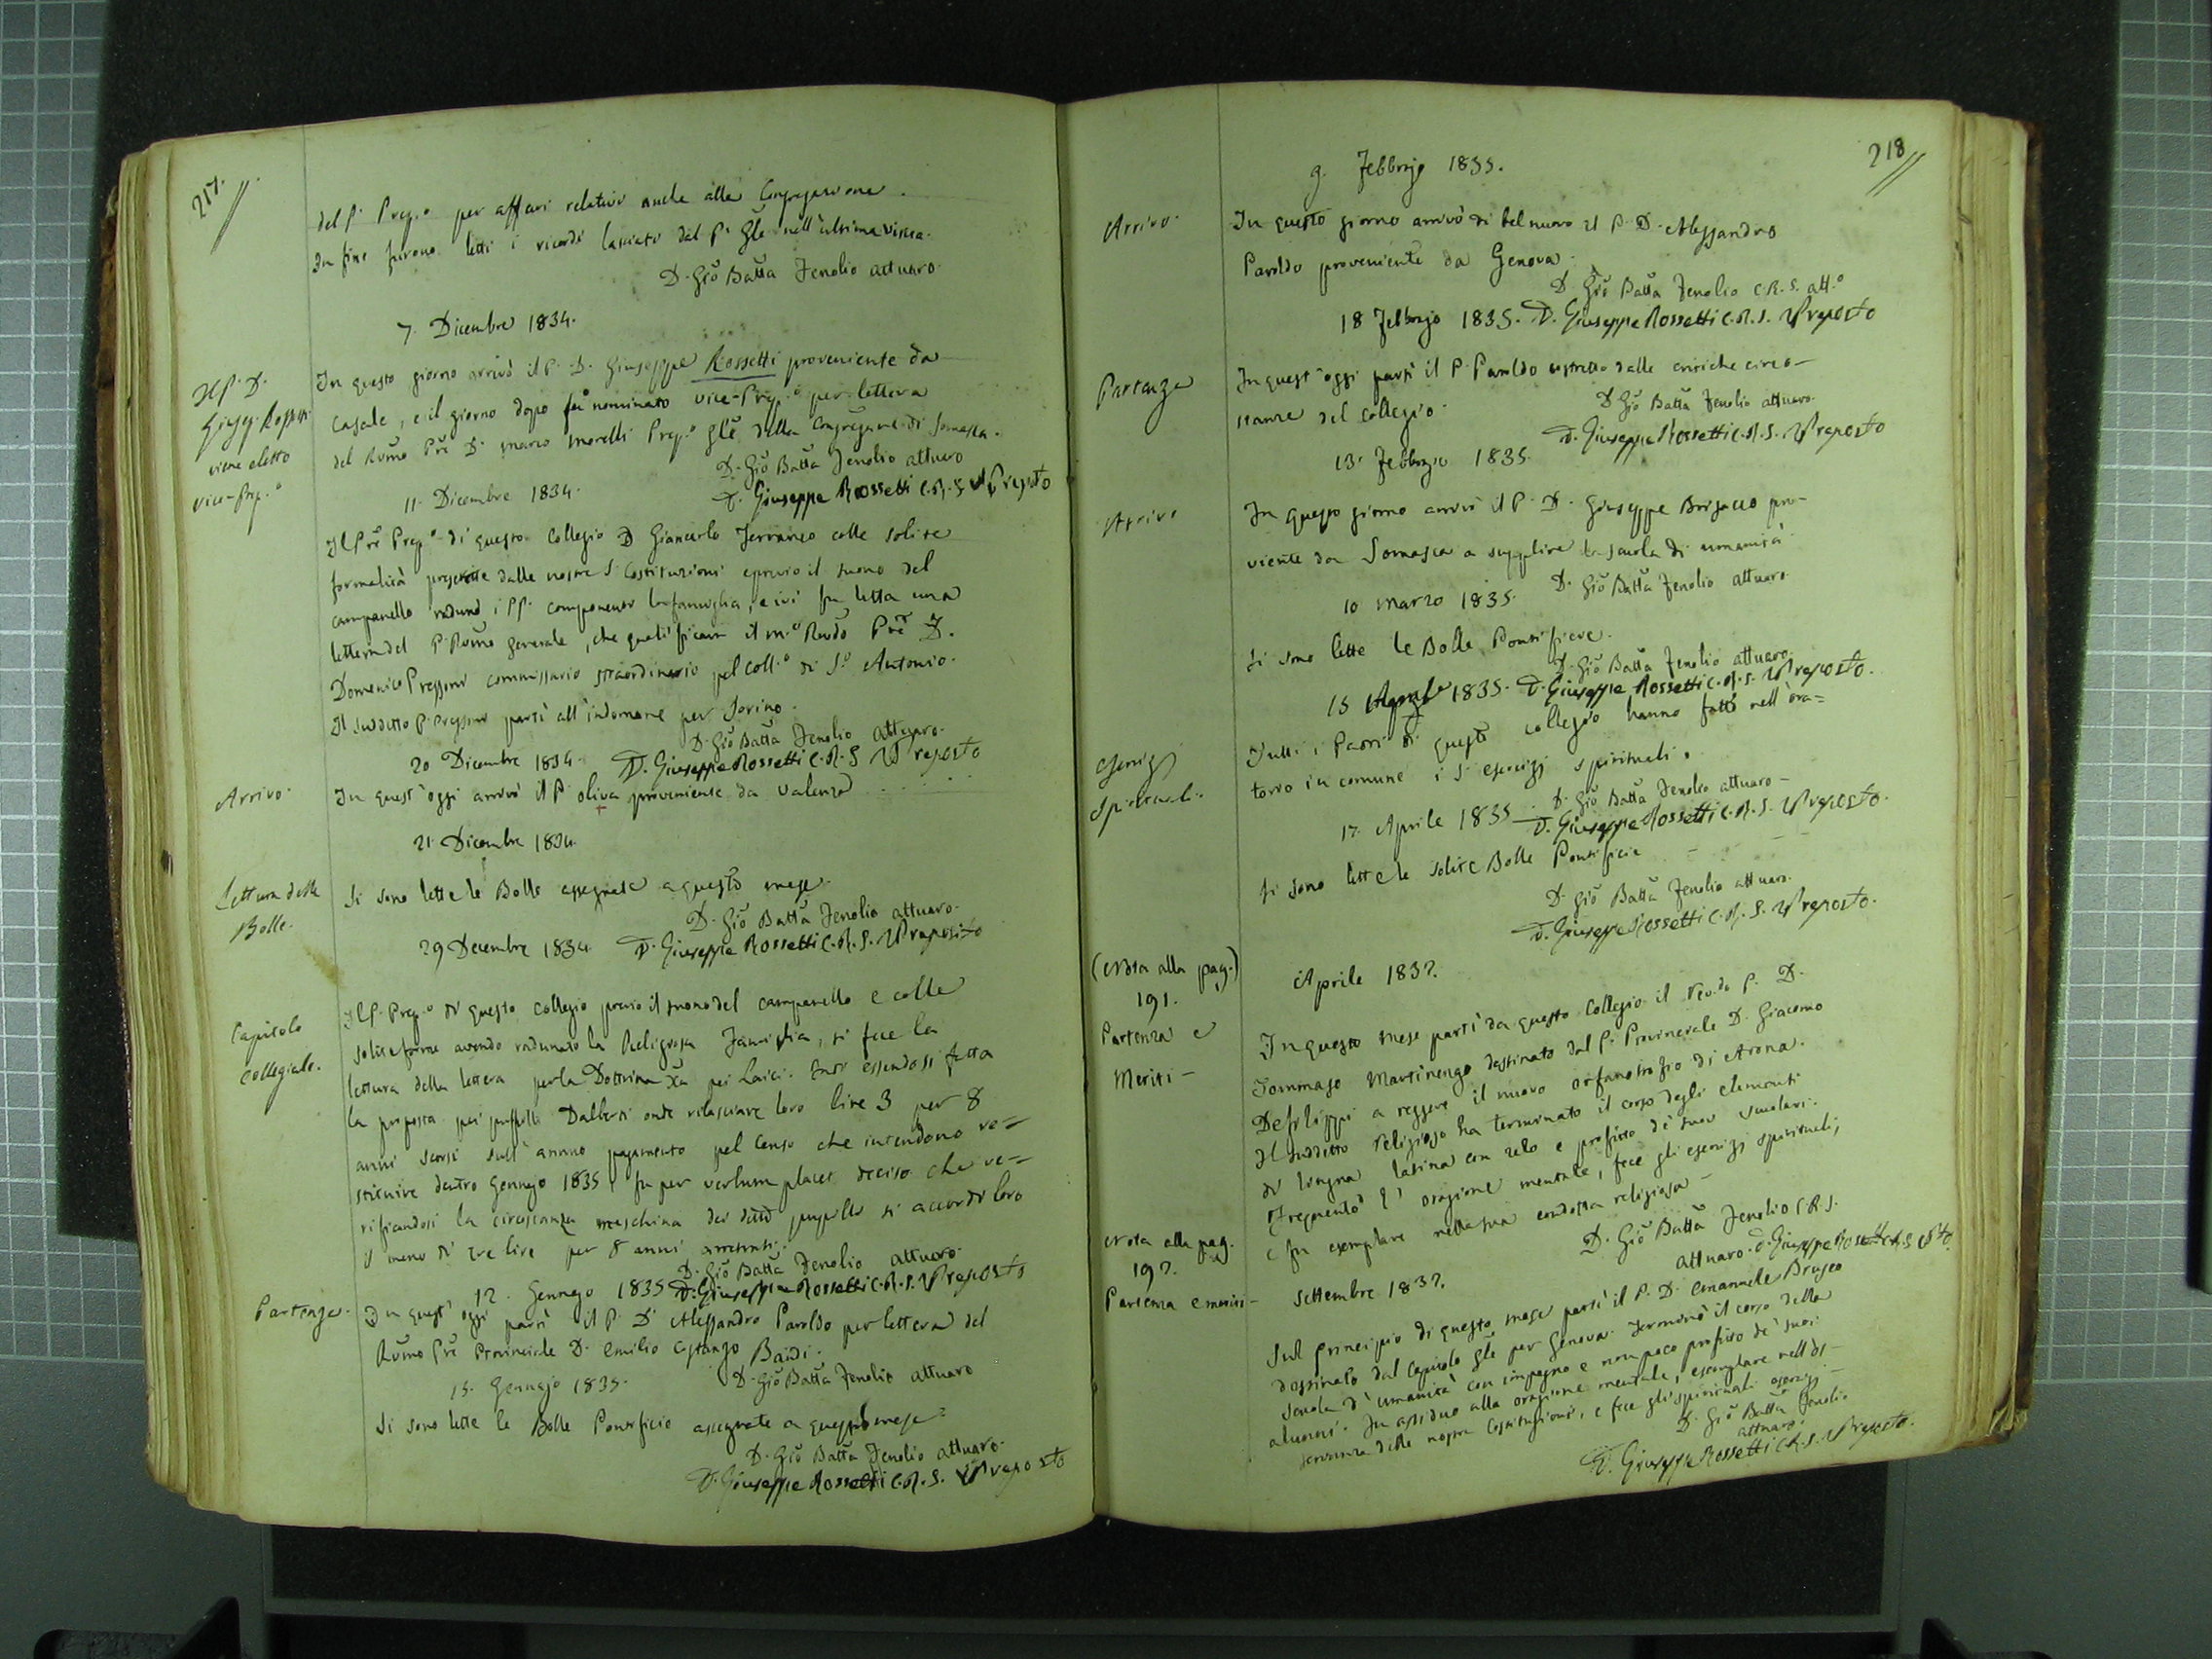 217.
del P. Prep.o per affari relativi anche alla Congregazione.
In fine furono letti i ricordi lasciati dal P. Gle nell'ultima visita.
D. Gio Batta Fenolio attuaro.
7. Dicembre 1834.
Il P. D.
Gius. Rossetti
viene eletto
vice-Prep.o
In questo giorno arrivò il P. D. Giuseppe Rossetti proveniente da
Casale, e il giorno dopo fu nominato vice-Prep.o per lettera
del Rumo Pre D. Marco Morelli Prep.o Gle della Congregane di Somasca.
D. Gio Batta Fenolio attuaro
D. Giuseppe Rossetti C.R.S. VPreposto
11. Dicembre 1834.
Il Pre Prep.o di questo Collegio D Giancarlo Ferranco colle solite
formalità prescritte dalle nostre S. Costituzioni e previo il suono del
campanello radunò i PP. componenti la famiglia, e ivi fu letta una
lettera del P. Rumo Generale, che qualificava il m.o Revdo Pre D.
Domenico Pressoni commissario straordinario pel Coll.o di S.o Antonio.
Il suddetto P. Pressoni partì all'indomane per Torino.
D. Gio Batta Fenolio attuaro.
20 Dicembre 1834. D. Giuseppe Rossetti C.R.S VPreposto
Arrivo.
In quest'oggi arrivò il P. Oliva proveniente da Valenza
21. Dicembre 1834.
Lettura delle
Bolle.
Si sono lette le Bolle assegnate a questo mese.
D. Gio Batta Fenolio attuaro.
29 Decembre 1834. D. Giuseppe Rossetti C.R.S. VPreposito
Capitolo
Collegiale.
Il P. Prep.o di questo collegio previo il suono del campanello e colle
solite forme avendo radunato la Religiosa Famiglia, si fece la
lettura della lettera per la Dottrina Xa pei Laici. Indi essendosi fatta
la proposta pei pupilli Dalberti onde rilasciare loro lire 3 per 8
anni scorsi sull'annuo pagamento pel Censo che intendono re=
stituire dentro Gennajo 1835, fu per verbum placet deciso che ve=
rificandosi la circostanza meschina dei detti pupilli si accordi loro
il meno di tre lire per 8 anni arretrati.
D. Gio Batta Fenolio attuaro.
12. Gennajo 1835 D. Giuseppe Rossetti C.R.S. VPreposto
Partenza.
In quest'oggi partì il P. D. Alessandro Paroldo per lettera del
Rumo Pre Provinciale D. Emilio Costanzo Baudi.
15. Gennajo 1835. D. Gio Batta Fenolio attuaro
Si sono lette le Bolle Pontificie assegnate a questo mese
D. Gio Batta Fenolio attuaro.
D. Giuseppe Rossetti C.R.S. VPreposto
218
9. Febbrajo 1835.
Arrivo.
In questo giorno arrivò di bel nuovo il P. D. Alessandro
Paroldo proveniente da Genova.
D. Gio Batta Fenolio C.R.S. att.o
18 Febbrajo 1835. D. Giuseppe Rossetti C.R.S. VPreposto
Partenza
In quest'oggi partì il P. Paroldo costretto dalle critiche circo-
stanze del collegio.
D. Gio Batta Fenolio attuaro.
D. Giuseppe Rossetti C.R.S. VPreposto
13. Febbrajo 1835.
Arrivo
In questo giorno arrivò il P. D. Giuseppe pro-
viente da Somasca a supplire la scuola di umanità
D. Gio Batta Fenolio attuaro.
10 Marzo 1835.
Si sono lette le Bolle Pontificie.
D. Gio Batta Fenolio attuaro.
15 Aprile 1835. D. Giuseppe Rossetti C.R.S. VPreposto.
Esercizj
Spirituali.
Tutti i Padri di questo collegio hanno fatto nell'ora=
torio in comune i S. esercizj spirituali.
D. Gio Batta Fenolio attuaro-
17. Aprile 1835. D. Giuseppe Rossetti C.R.S. VPreposto.
Si sono lette le solite Bolle Pontificie
D. Gio Batta Fenolio attuaro.
D. Giuseppe Rossetti C.R.S. VPreposto.
(Nota alla pag.)
191.
Partenza e
Meriti-
Aprile 1832.
In questo mese partì da questo Collegio il Rev.do P. D.
Tommaso Martinengo destinato dal P. Provinciale D. Giacomo
Defilippi a reggere il nuovo orfanotrofio di Arona.
Il suddetto religioso ha terminato il corso degli elementi
di lingua latina con zelo e profitto de' suoi scolari.
Frequentò l'orazione mentale, fece gli esercizj spirituali,
e fu esemplare nella sua condotta religiosa-
D. Gio Batta Fenolio C.R.S.
attuaro. D. Giuseppe Rossetti C.R.S. VPto
Nota alla pag.
192.
Partenza e meriti-
Settembre 1832.
Sul principio di questo mese partì il P. D. Emanuele Brusco
destinato dal Capitolo Gle per Genova. Terminò il corso della
scuola d'umanità con impegno e non poco profitto de' suoi
alunni. Fu assiduo alla orazione mentale, esemplare nell'os-
servanza delle nostre Costituzioni, e fece gli spirituali esercizj-
D. Gio Batta Fenolio
attuaro.
D. Giuseppe Rossetti C.R.S. VPreposto.